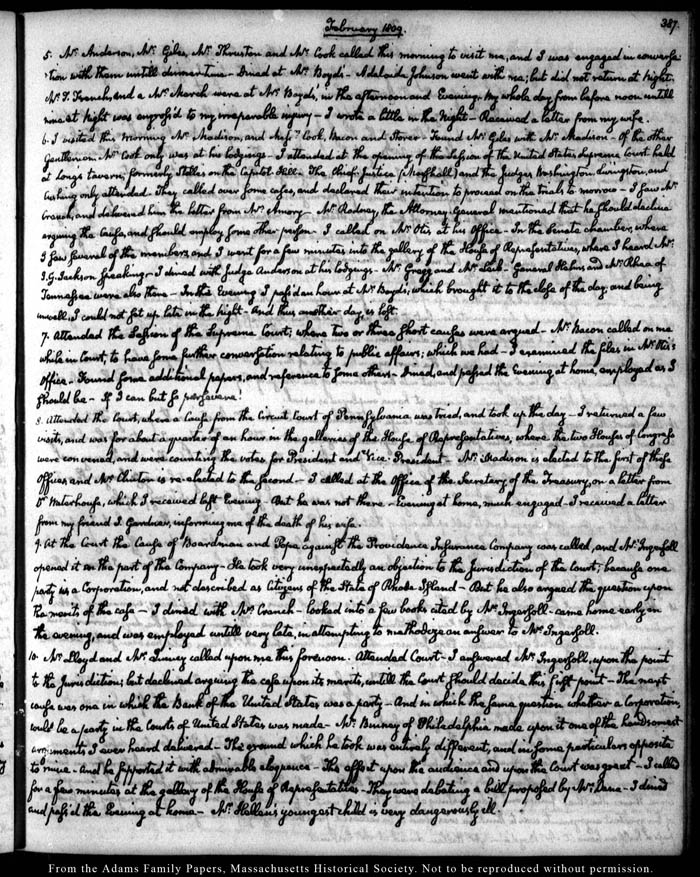 February 1809.
387.
5. Mr. Anderson, Mr. Giles, Mr. Thruston and Mr. Cook called this morning to visit me, and I was engaged in conversa
tion with them untill dinner time - Dined at Mr. Boyd's - Adelaide Johnson went with me; but did not return at night.
Mr. T. French, and a Mr. March were at Mr. Boyd's, in the afternoon and Evening. My whole day from before noon untill
nine at night was engross'd to my irreparable injury - I wrote a little in the Night - Received a letter from my wife.
6. I visited this morning Mr. Madison, and Messrs. Cook, Bacon and Storer - Found Mr. Giles with Mr. Madison - Of the other
Gentlemen Mr. Cook only was at his lodgings - I attended at the opening of the Session of the United States Supreme Court held
at Long's tavern, formerly Stelle's on the Capitol Hill. The Chief Justice (Marshall) and the Judges Washington, Livingston, and
Cushing only attended. They called over some cases, and declared their intention to proceed on the trials to morrow - I saw Mr.
Cranch, and delivered him the letter from Mr. Amory - Mr. Rodney, the Attorney General mentioned that he should decline
arguing the Cause, and should employ some other person - I called on Mr. Otis, at his Office - In the Senate chamber, where
I saw several of the members, and I went for a few minutes into the gallery of the House of Representatives, where I heard Mr.
J. G. Jackson speaking - I dined with Judge Anderson at his lodgings - Mr. Gregg and Mr. Leib - General Hahns and Mr. Rhea of
Tennessee were also there - In the Evening I pass'd an hour at Mr. Boyd's, which brought it to the close of the day, and being
unwell, I could not sit up late in the night - And thus another day is lost.
7. Attended the Session of the Supreme Court; where two or three short causes were argued - Mr. Bacon called on me
while in Court, to have some further conversation relating to public affairs; which we had - I examined the files in Mr. Otis's
Office - Found some additional papers, and reference to some others - Dined, and passed the Evening at home, employed as I
should be - If I can but so persevere!
8. Attended the Court, where a Cause from the Circuit court of Pennsylvania was tried, and took up the day - I returned a few
visits, and was for about a quarter of an hour in the galleries of the House of Representatives, where the two Houses of Congress
were convened, and were counting the votes for President and Vice-President - Mr. Madison is elected to the first of these
Offices and Mr. Clinton is re-elected to the second - I called at the Office of the Secretary of the Treasury, on a letter from
Dr. Waterhouse, which I received last Evening - But he was not there - Evening at home, much engaged - I received a letter
from my friend J. Gardner, informing me of the death of his wife.
9. At the Court the Cause of Boardman and Pope against the Providence Insurance Company was called, and Mr. Ingersoll
opened it on the part of the Company - He took very unexpectedly an objection to the Jurisdiction of the Court; because one
party is a Corporation, and not described as Citizens of the State of Rhode Island - But he also argued the question upon
the merits of the case - I dined with Mr. Cranch - looked into a few books cited by Mr. Ingersoll - came home early in
the evening, and was employed untill very late, in attempting to methodize an answer to Mr. Ingersoll.
10. Mr. Lloyd and Mr. called upon me this forenoon. Attended Court - I answered Mr. Ingersoll, upon the point
to the Jurisdiction; but declined arguing the case upon its merits, untill the Court should decide this first point - The next
cause was one in which the Bank of the United States was a party - And in which the same question whether a Corporation,
could be a party in the Courts of United States was made - Mr. Binney of Philadelphia made upon it one of the handsomest
arguments I ever heard delivered - The ground which he took was entirely different, and in some particulars opposite
to mine - And he supported it with admirable eloquence - The effect upon the audience and upon the Court was great - I called
for a few minutes at the gallery of the House of Representatives - They were debating a bill proposed by Mr. Dana - I dined
and pass'd the Evening at home - Mr. Hellen's youngest child is very dangerously ill.
From the Adams Family Papers, Massachusetts Historical Society. Not to be reproduced without permission.